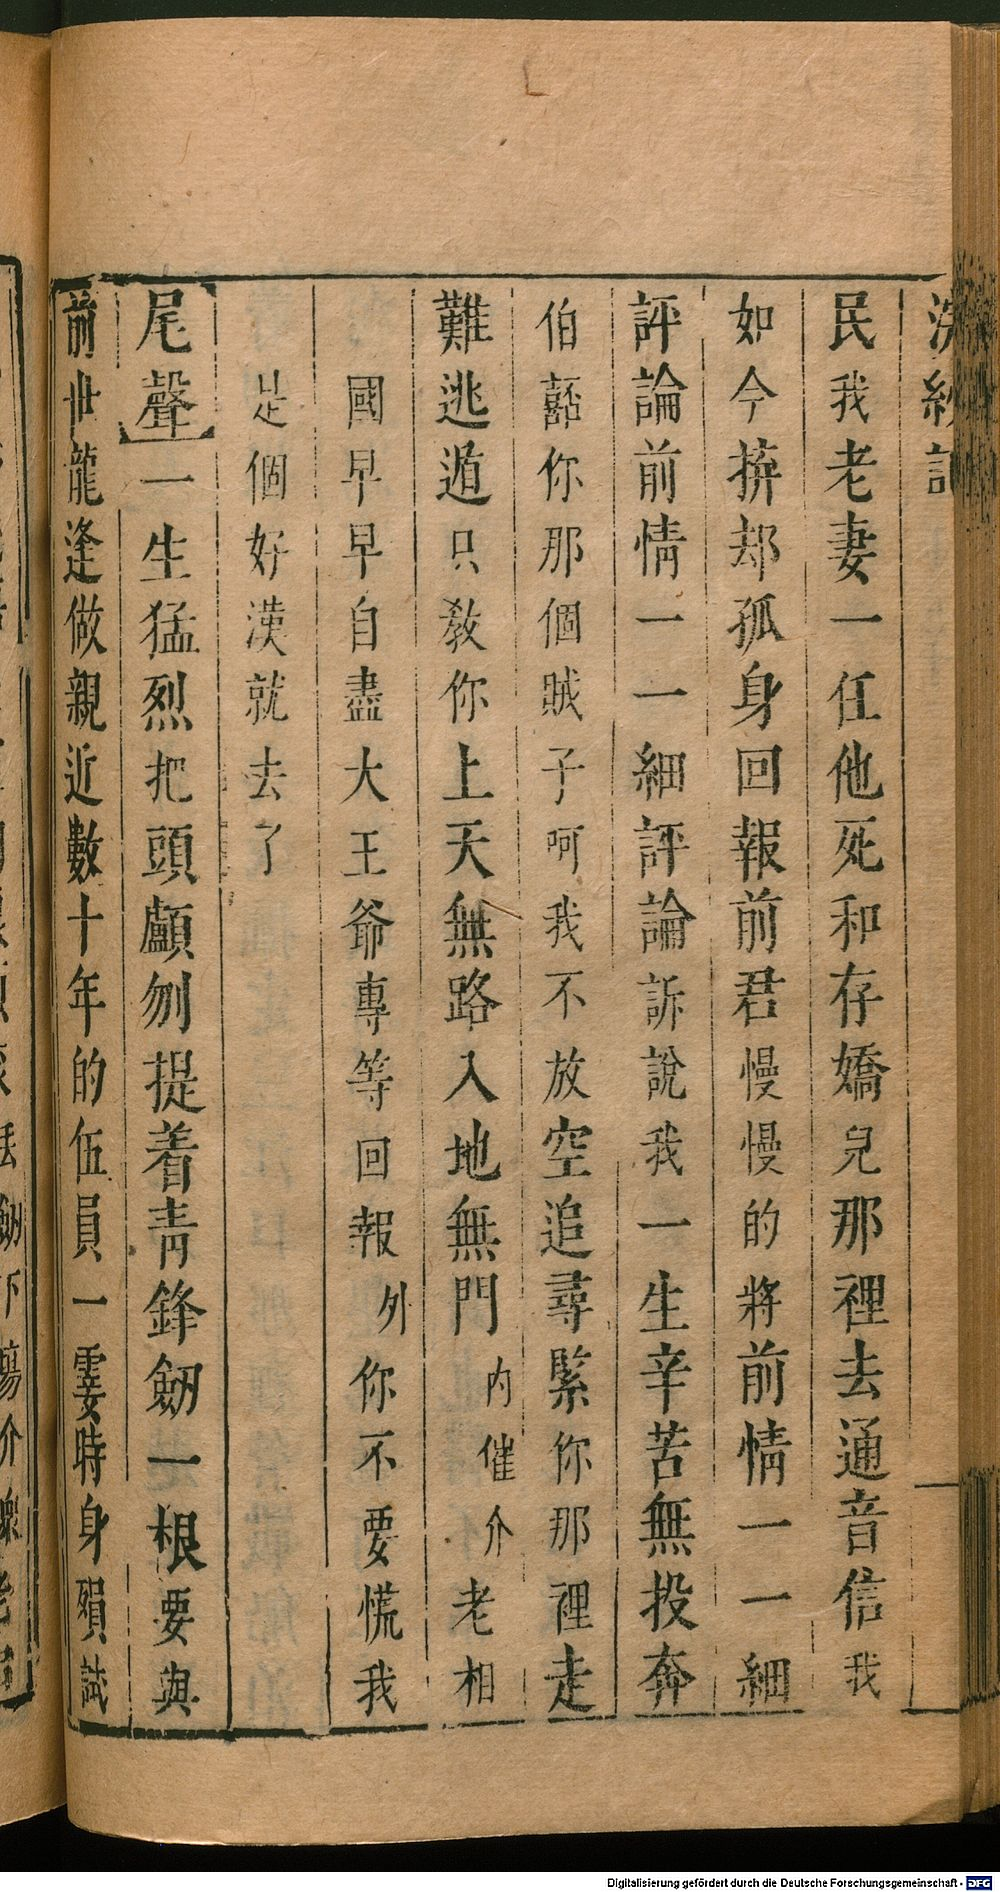 浣紗記
民我老妻一任他死和存嬌兒那裡去通音信我
如今拚却孤身回報前君慢慢的將前情一一細
評論前情一一細評論訴說我一生辛苦無投奔
伯嚭你那個賊子呵我不放空追尋緊你那裡走
難逃遁只教你上天無路入地無門內催介老相
國早早自盡大王爺專等回報外你不要慌我
是個好漢就去了
尾聲一生猛烈把頭顱刎提着青鋒劒一根要與
前世龍逢做親近數十年的伍員一霎時身殞試
Digitalisierung gefördert durch die Deutsche Forschungsgemeinschaft - DFG